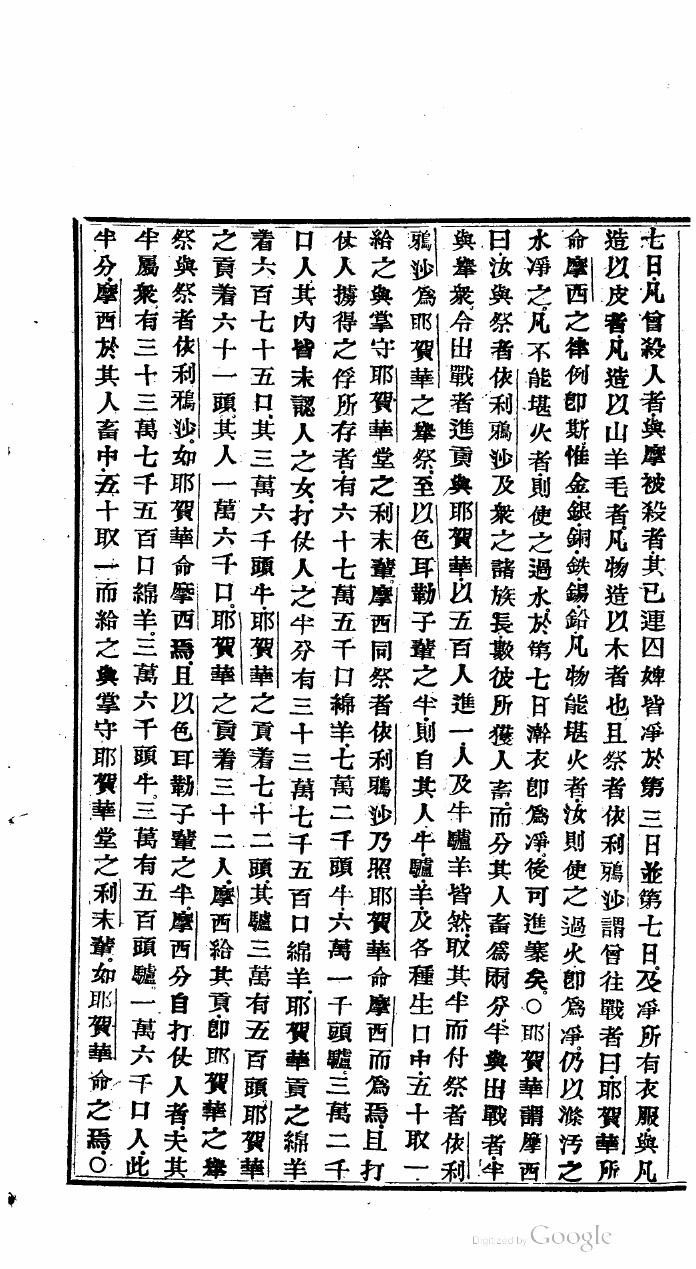 七日.凡曾殺人者.與摩被殺者.其已連囚婢皆凈於第三日並第七日.及凈所有衣服與凡
造以皮者.凡造以山羊毛者.凡物造以木者也.且祭者依利鴉沙謂曾往戰者曰.耶賀華所
命摩西之律例卽斯惟金.銀.銅.鉄.錫.鉛.凡物能堪火者.汝則使之過火卽爲凈.仍以滌汚之
水凈之.凡不能堪火者.則使之過水.於第七日澣衣卽爲凈.後可進寨矣.○耶賀華謂摩西
曰.汝與祭者依利鴉沙及衆之諸族長.數彼所獲人畜.而分其人畜爲兩分.半與出戰者.半
與舉衆.令出戰者進貢與耶賀華.以五百人進一人.及牛驢羊皆然.取其半而付祭者依利
鴉沙爲耶賀華之舉祭.至以色耳勒子輩之半.則自其人.牛.驢.羊.及各種生口中.五十取一
給之與掌守耶賀華堂之利未輩.摩西同祭者依利鴉沙乃照耶賀華命摩西而爲焉.且打
仗人擄得之俘所存者.有六十七萬五千口綿羊.七萬二千頭牛.六萬一千頭驢.三萬二千
口人.其內皆未認人之女.打仗人之半分有三十三萬七千五百口綿羊.耶賀華貢之綿羊
着六百七十五口.其三萬六千頭牛.耶賀華之貢着七十二頭.其驢三萬有五百頭.耶賀華
之貢着六十一頭.其人一萬六千口.耶賀華之貢着三十二人.摩西給其貢.卽耶賀華之舉
祭與祭者依利鴉沙.如耶賀華命摩西焉.且以色耳勒子輩之半.摩西分自打仗人者.夫其
半屬衆.有三十三萬七千五百口綿羊.三萬六千頭牛.三萬有五百頭驢.一萬六千口人.此
半分.摩西於其人畜中.五十取一而給之與掌守耶賀華堂之利未輩.如耶賀華命之焉.○
Digitized by Google